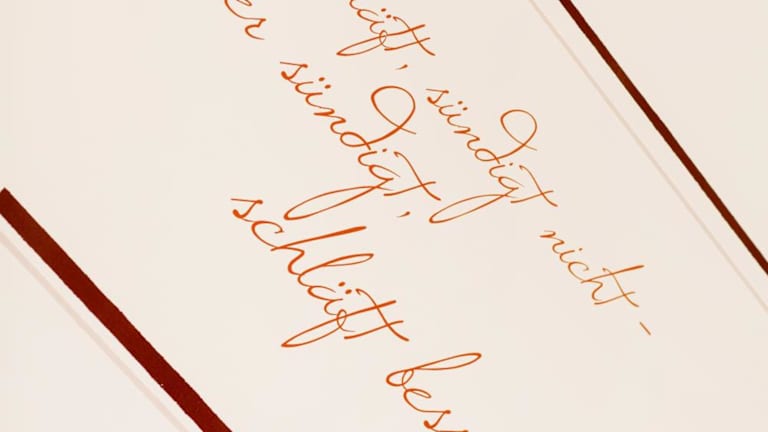 läft, sündigt nicht -
er sündigt,
schläft bess